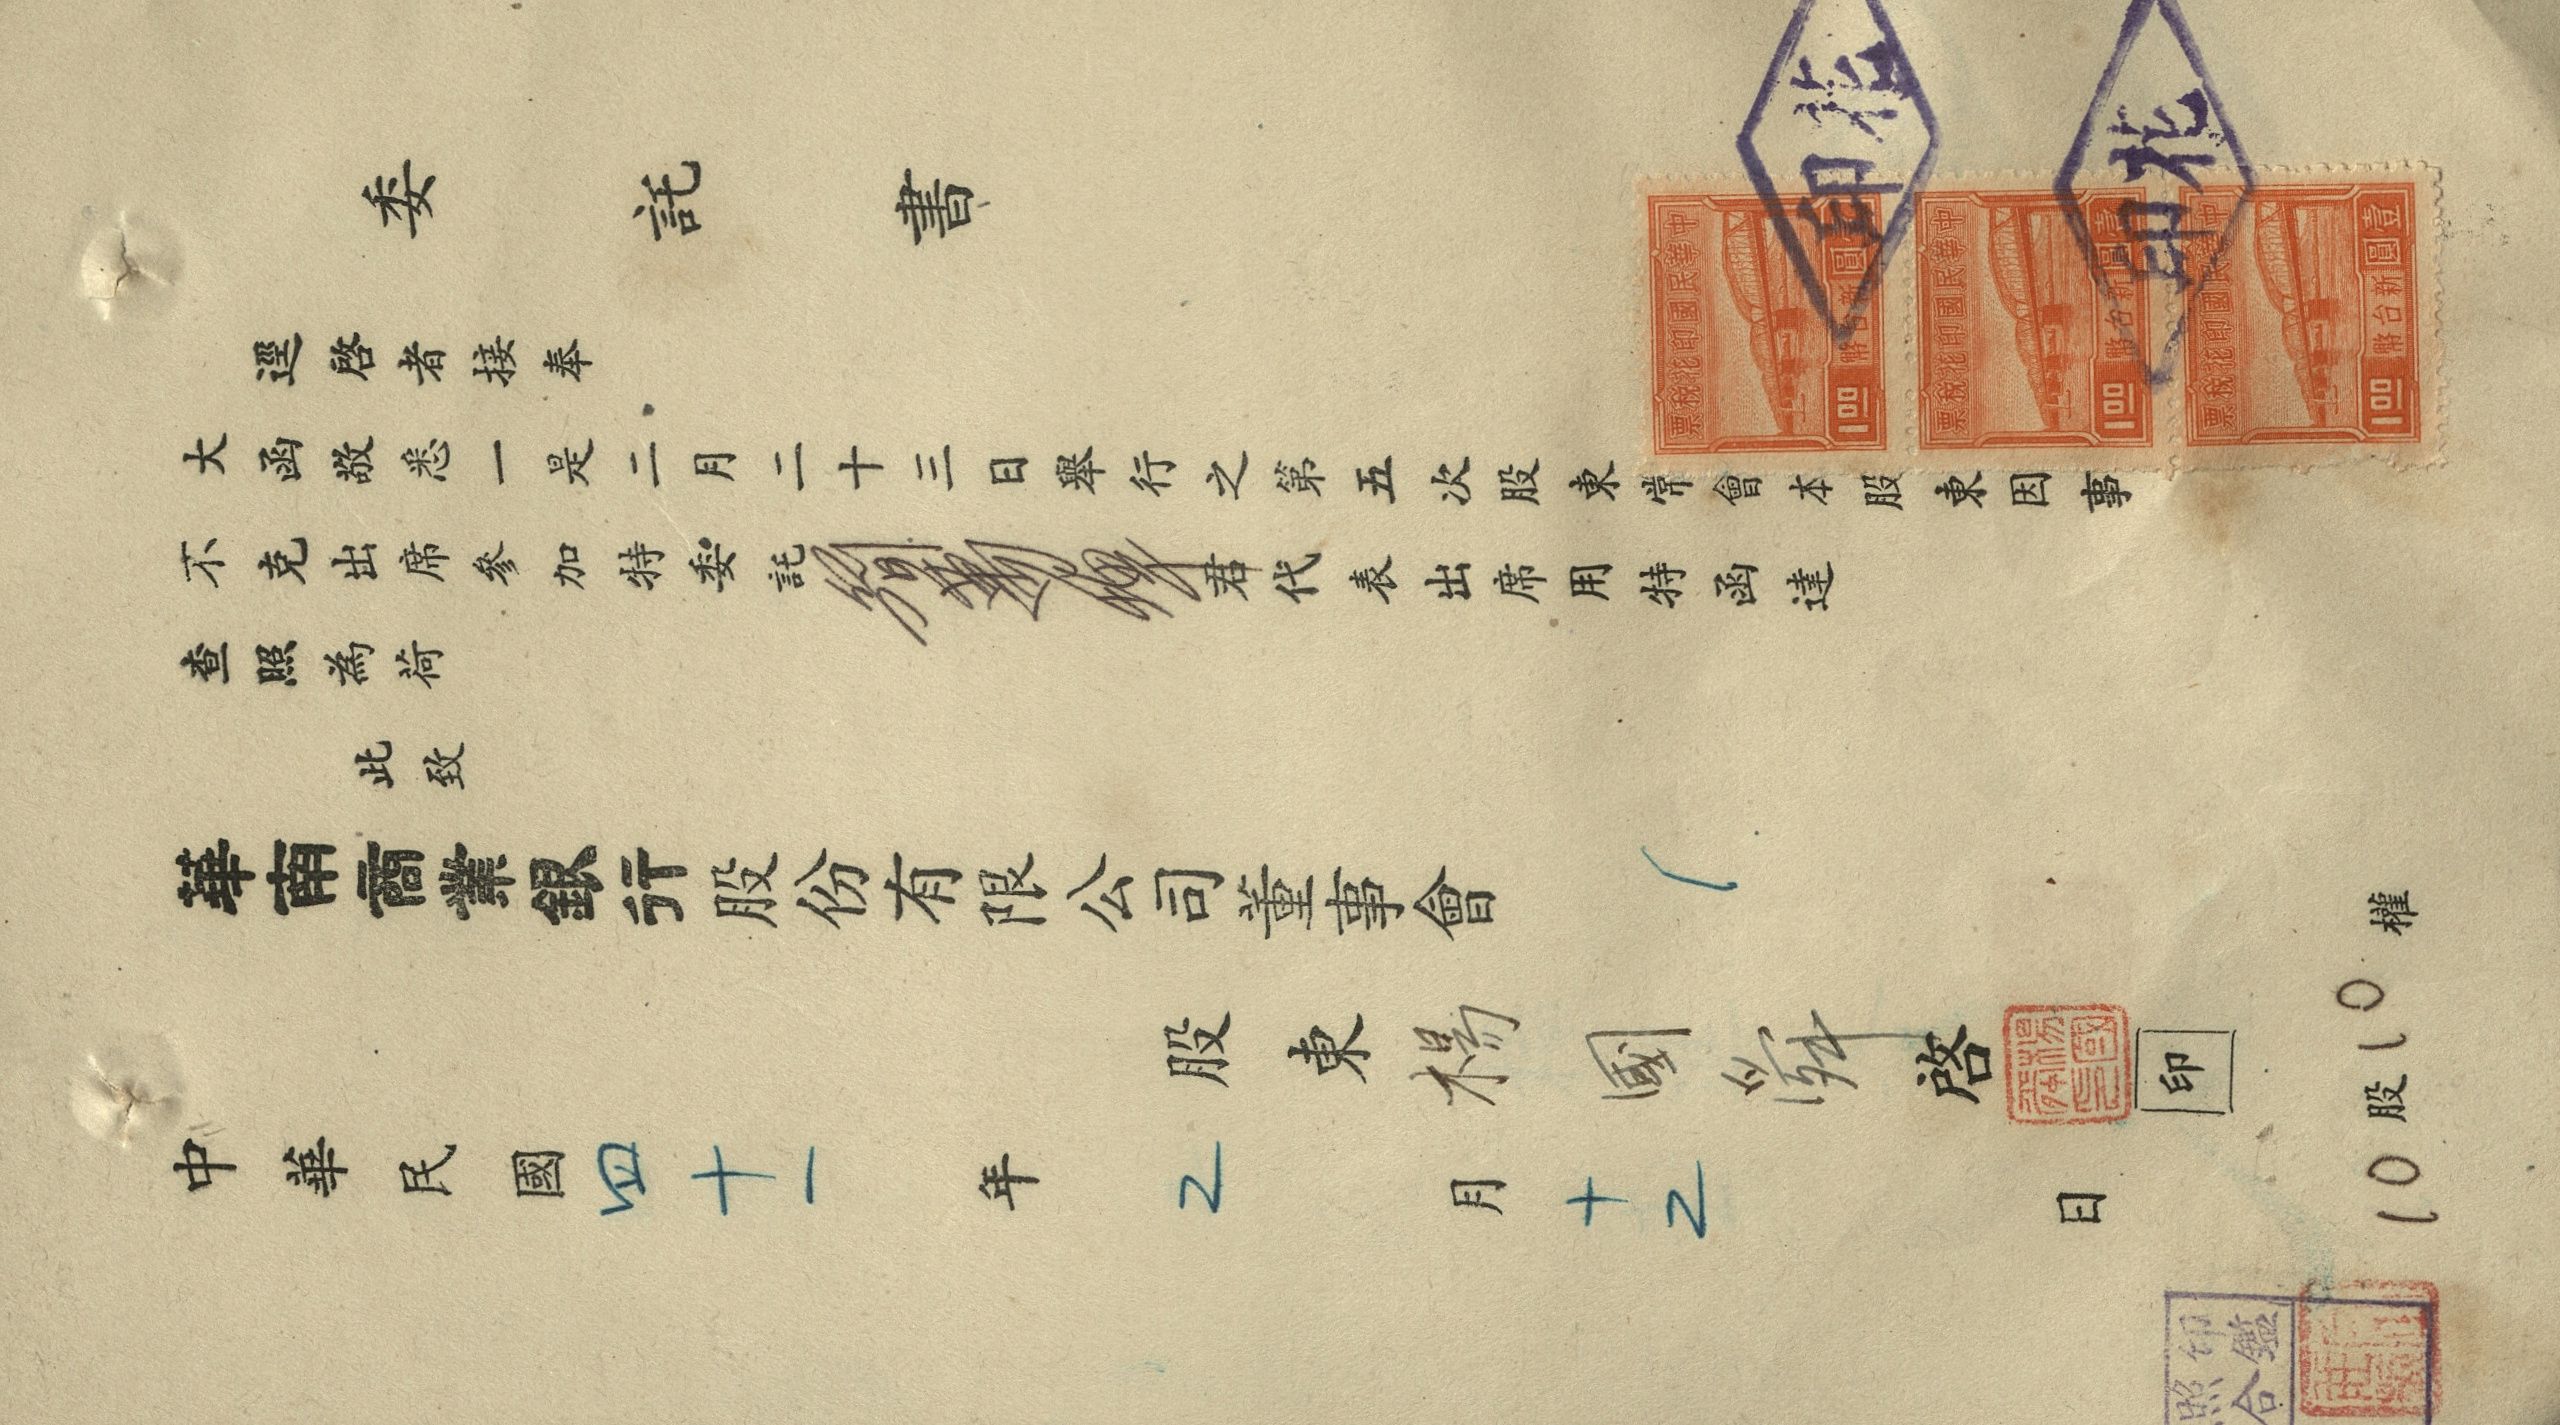 委託書
逕啓者接奉
大函敬悉一是二月二十三日舉行之第五次股東常會本股東因事
不克出席參加特委託君代表出席用特函達
查照為荷
此致
華南商業銀行股份有限公司董事會
股東楊國 啓
印
中華民國四十一年2月十2日
10股10權
中華民國印花稅票
壹圓
新台幣
1.00
中華民國印花稅票
壹圓
新台幣
1.00
中華民國印花稅票
壹圓
新台幣
1.00
印花
印花
印鑑
照合